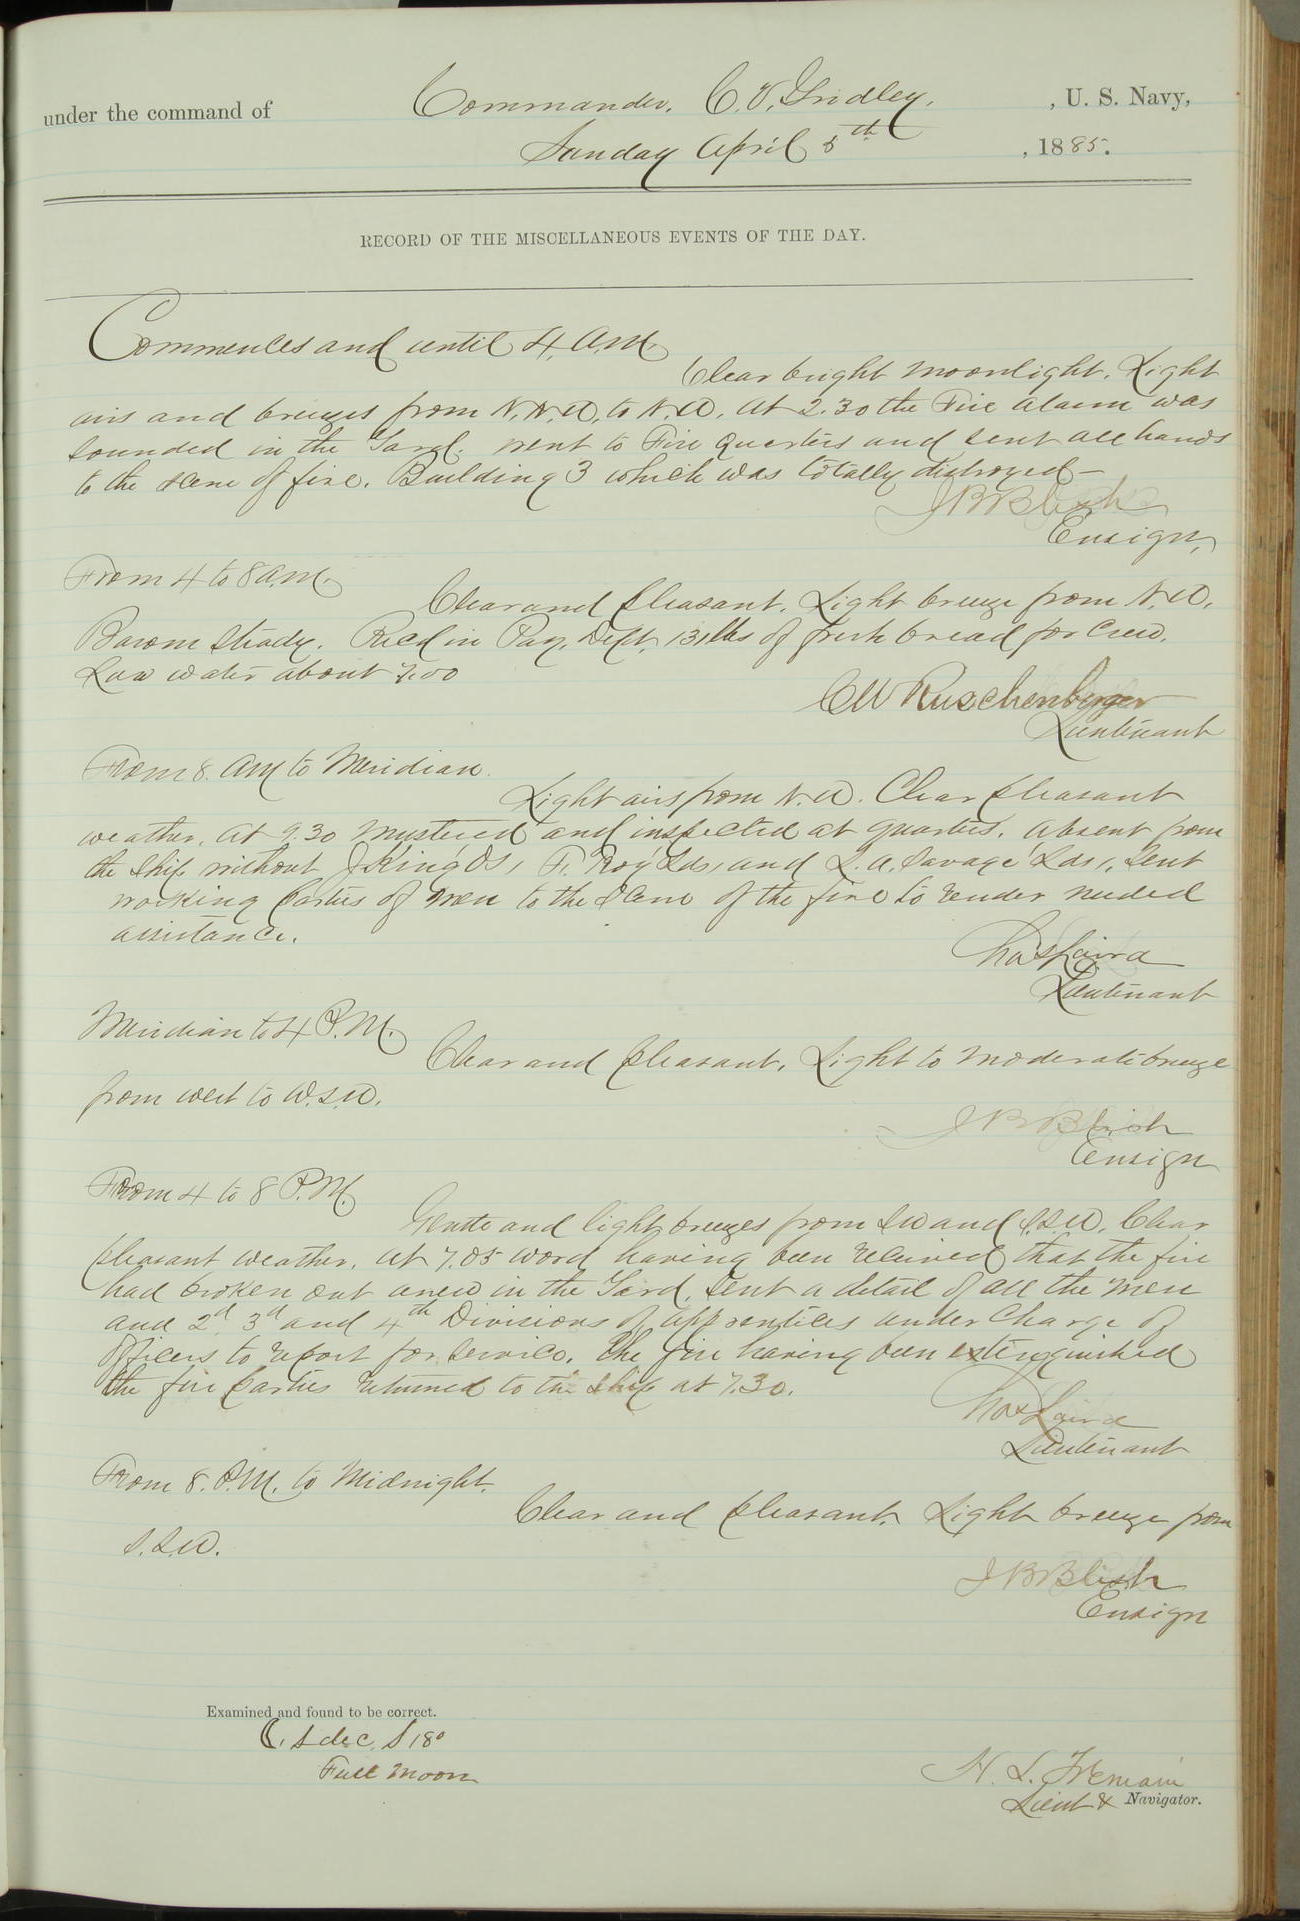 under the command of Commander. C. V. Gridley. , U. S. Navy,
Sunday April 5th , 1885.
RECORD OF THE MISCELLANEOUS EVENTS OF THE DAY.
Commences and until 4. A.M.
Clear bright moonlight. Light
airs and breezes from N.N.W. to N.W. At 2.30 the Fire alarm was
sounded in the Yard. went to Fire quarters and sent all hands
to the scene of fire. Building 3 which was totally distroyed—
J B Blish
Ensign,
From 4 to 8 A.M.
Clear and pleasant. Light breeze from N.W.
Barom steady. Recd in Pay. Dept. 131 lbs of fresh bread for crew.
Low water about 7.00
C W Ruschenberger
Lieutenant
From 8. AM to Meridian.
Light airs from N.W. Clear pleasant
weather. At 9.30 mustered and inspected at quarters. Absent from
the ship without J. King , F. Roy Lds, and L. A. Savage Lds,. Sent
working parties of men to the scene of the fire to render needed
assistance.
Chas Laird
Lieutenant
Meridian to 4 P.M.
Clear and pleasant. Light to moderate breeze
from west to W.S.W.
J B Blish
Ensign
From 4 to 8 P.M.
Gentle and light breezes from SW and S.S.W. Clear
pleasant weather. At 7.05 word having been received that the fire
had broken out anew in the Yard, sent a detail of all the men
and 2d 3d and 4th Divisions of apprentices under charge of
officers to report for service. The fire having been extinguished
the fire parties returned to the ship at 7.30.
Chas Laird
Lieutenant
From 8. P.M. to Midnight.
Clear and pleasant. Light breeze from
S.S.W.
J B Blish
Ensign
Examined and found to be correct.
dec. S 18°
Full Moon
H. L. Tremain
Lieut & Navigator.